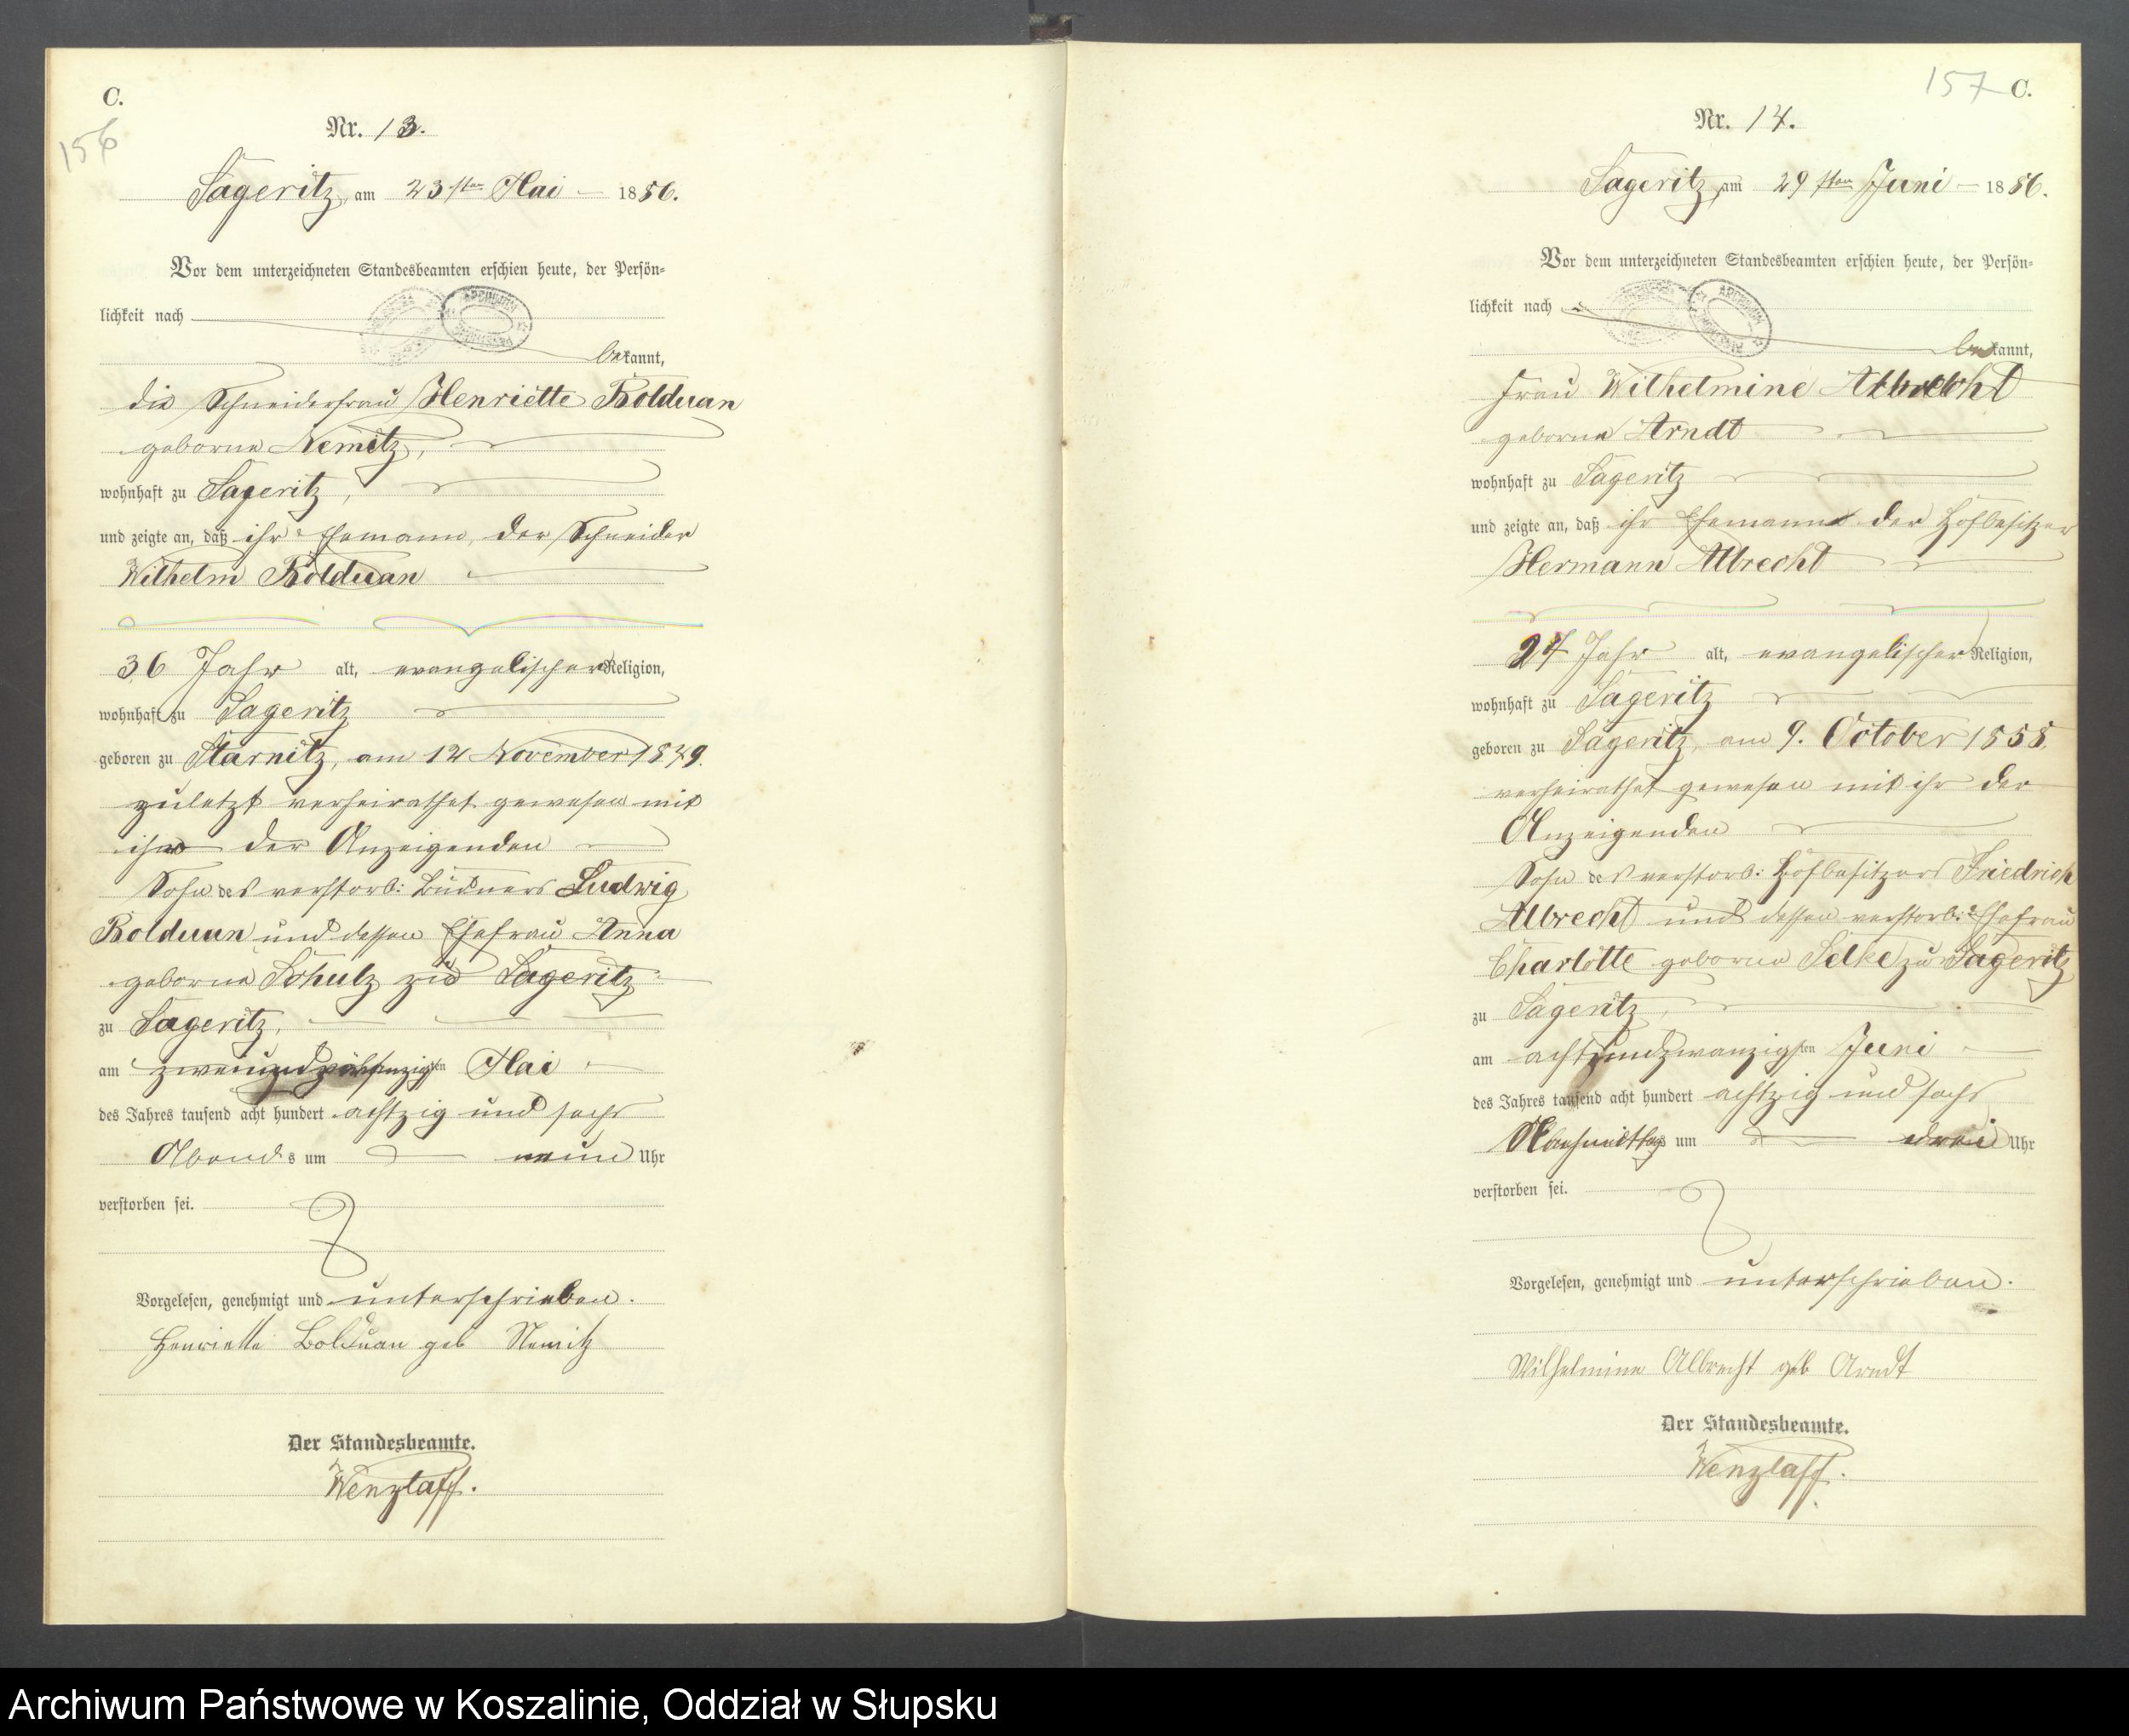 C.
156
Nr. 13.
Sageritz, am 23sten Mai 1886.
Vor dem unterzeichneten Standesbeamten erschien heute, der Persön-
lichkeit nach
bekannt,
die Schneiderfrau Henriette Bolduan
geborne Nemitz,
wohnhaft zu Sageritz,
und zeigte an, daß ihr Ehemann, der Schneider
Wilhelm Bolduan
36 Jahr alt, evangelischer Religion,
wohnhaft zu Sageritz
geboren zu Starnitz, am 12 November 1849.
zuletzt verheirathet gewesen mit
ihr der Anzeigenden
Sohn des verstorb: Büdners Ludwig
Bolduan und dessen Ehefrau Anna
geborne Schulz zu Sageritz
zu Sageritz,
am zweiundzwanzigsten Mai
des Jahres tausend acht hundert achtzig und sechs
Abends um neun Uhr
verstorben sei.
Vorgelesen, genehmigt und unterschrieben.
Henriette Bolduan geb Nemitz
Der Standesbeamte.
Wenzlaff.
157 C.
Nr. 14.
Sageritz, am 29sten Juni 1886.
Vor dem unterzeichneten Standesbeamten erschien heute, der Persön-
lichkeit nach
bekannt,
Frau Wilhelmine Albrecht
geborne Arndt
wohnhaft zu Sageritz
und zeigte an, daß ihr Ehemann der Hofbesitzer
Hermann Albrecht
27 Jahr alt, evangelischer Religion,
wohnhaft zu Sageritz
geboren zu Sageritz, am 9. October 1858.
verheirathet gewesen mit ihr der
Anzeigenden
Sohn des verstorb: Hofbesitzers Friedrich
Albrecht und dessen verstorb: Ehefrau
Charlotte geborne Selke zu Sageritz
zu Sageritz,
am achtundzwanzigsten Juni
des Jahres tausend acht hundert achtzig und sechs
Nachmittags um drei Uhr
verstorben sei.
Vorgelesen, genehmigt und unterschrieben.
Wilhelmine Albrecht geb Arndt
Der Standesbeamte.
Wenzlaff.
Archiwum Państwowe w Koszalinie, Oddział w Słupsku